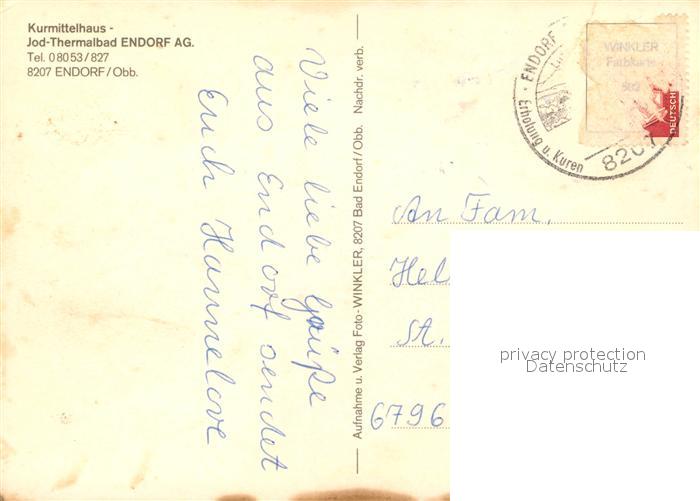 Kurmittelhaus -
Jod-Thermalbad ENDORF AG.
Tel. 08053/827
8207 ENDORF/Obb.
Viele liebe Grüße
aus Endorf sendet
Euch Hannelore
Aufnahme u. Verlag Foto-WINKLER, 8207 Bad Endorf/Obb. Nachdr. verb.
ENDORF
Erholung u. Kuren
8207
WINKLER
Farbkarte
DEUTSCH
An Fam.
Hel
St.
6796
privacy protection
Datenschutz